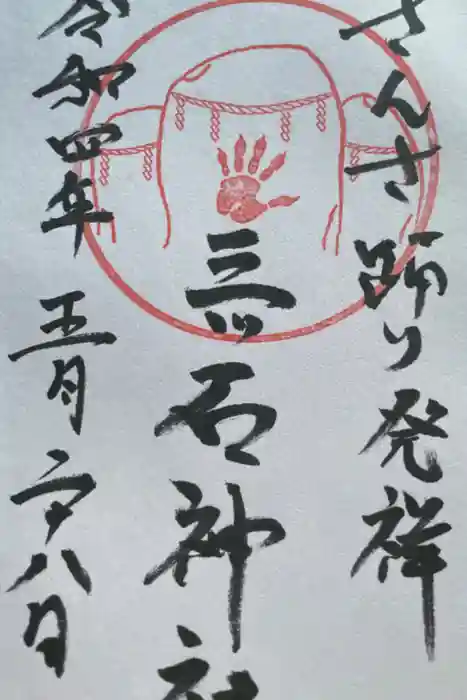 さんさ踊り発祥
三ツ石神社
令和四年五月廿八日